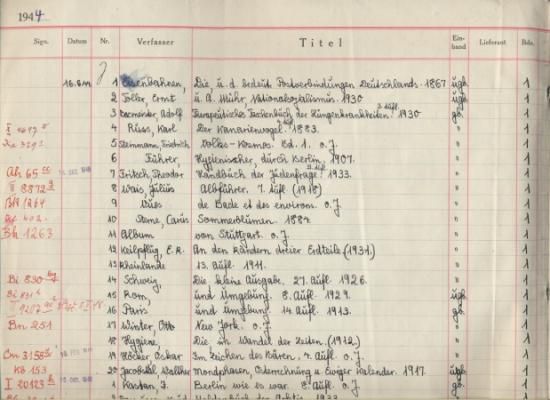 1944
Sign. Datum Nr. Verfasser Titel Einband Lieferant Bde.
16.8.44 1 Eisenbahnen, Die u. d. bedeut. Postverbindungen Deutschlands. 1867 ugb. 1
2 Toller, Ernst u. A. Mühr, Nationalsozialismus. 1930 gb. 1
3 Adolf Therapeutisches Taschenbuch der Lungenkrankheiten. 3. Aufl. 1930 gb. 1
4 Russ, Karl Der Kanarienvogel. 1883. " 1
5 Steinmann, Friedrich Volks-Kosmos. Bd. 1. o. J. " 1
6 Führer, Hygienischer, durch Berlin. 1907. " 1
Ah 65 7 Fritsch, Theodor Handbuch der Judenfrage. 1933. " 1
II 8872 8 Wais, Julius Albführer. 7. Aufl. (1918) " 1
Bh 1264 9 Vues de Bade et des environs. o. J " 1
402 10 Sterne, Carus Sommerblumen. 1884. " 1
Bh 1263 11 Album von Stuttgart. o. J. " 1
12 Keilpflug, E. R. An den Rändern dreier Erdteile (1931.) " 1
13 Rheinlande 13. Aufl. 1911. " 1
Bi 830 14 Schweiz, Die kleine Ausgabe. 27. Aufl. 1926. " 1
Bi 831 15 Rom, und Umgebung. 8. Aufl. 1929. ugb. 1
16 Paris und Umgebung. 14. Aufl. 1913. gb. 1
Bm 251 17 Winter, Otto New York. o. J. " 1
18 Hygiene, Die im Wandel der Zeiten. (1912.) " 1
Cm 3158 19 Höcker, Oskar Im Zeichen des Bären. 4. Aufl. o. J. " 1
Kb 153 20 Jacobsthal, Walther Mondphasen, Osterrechnung u. Ewiger Kalender. 1917. ugb. 1
I 20123 1 Kastan, J. Berlin wie es war. 8. Aufl. o. J. gb. 1